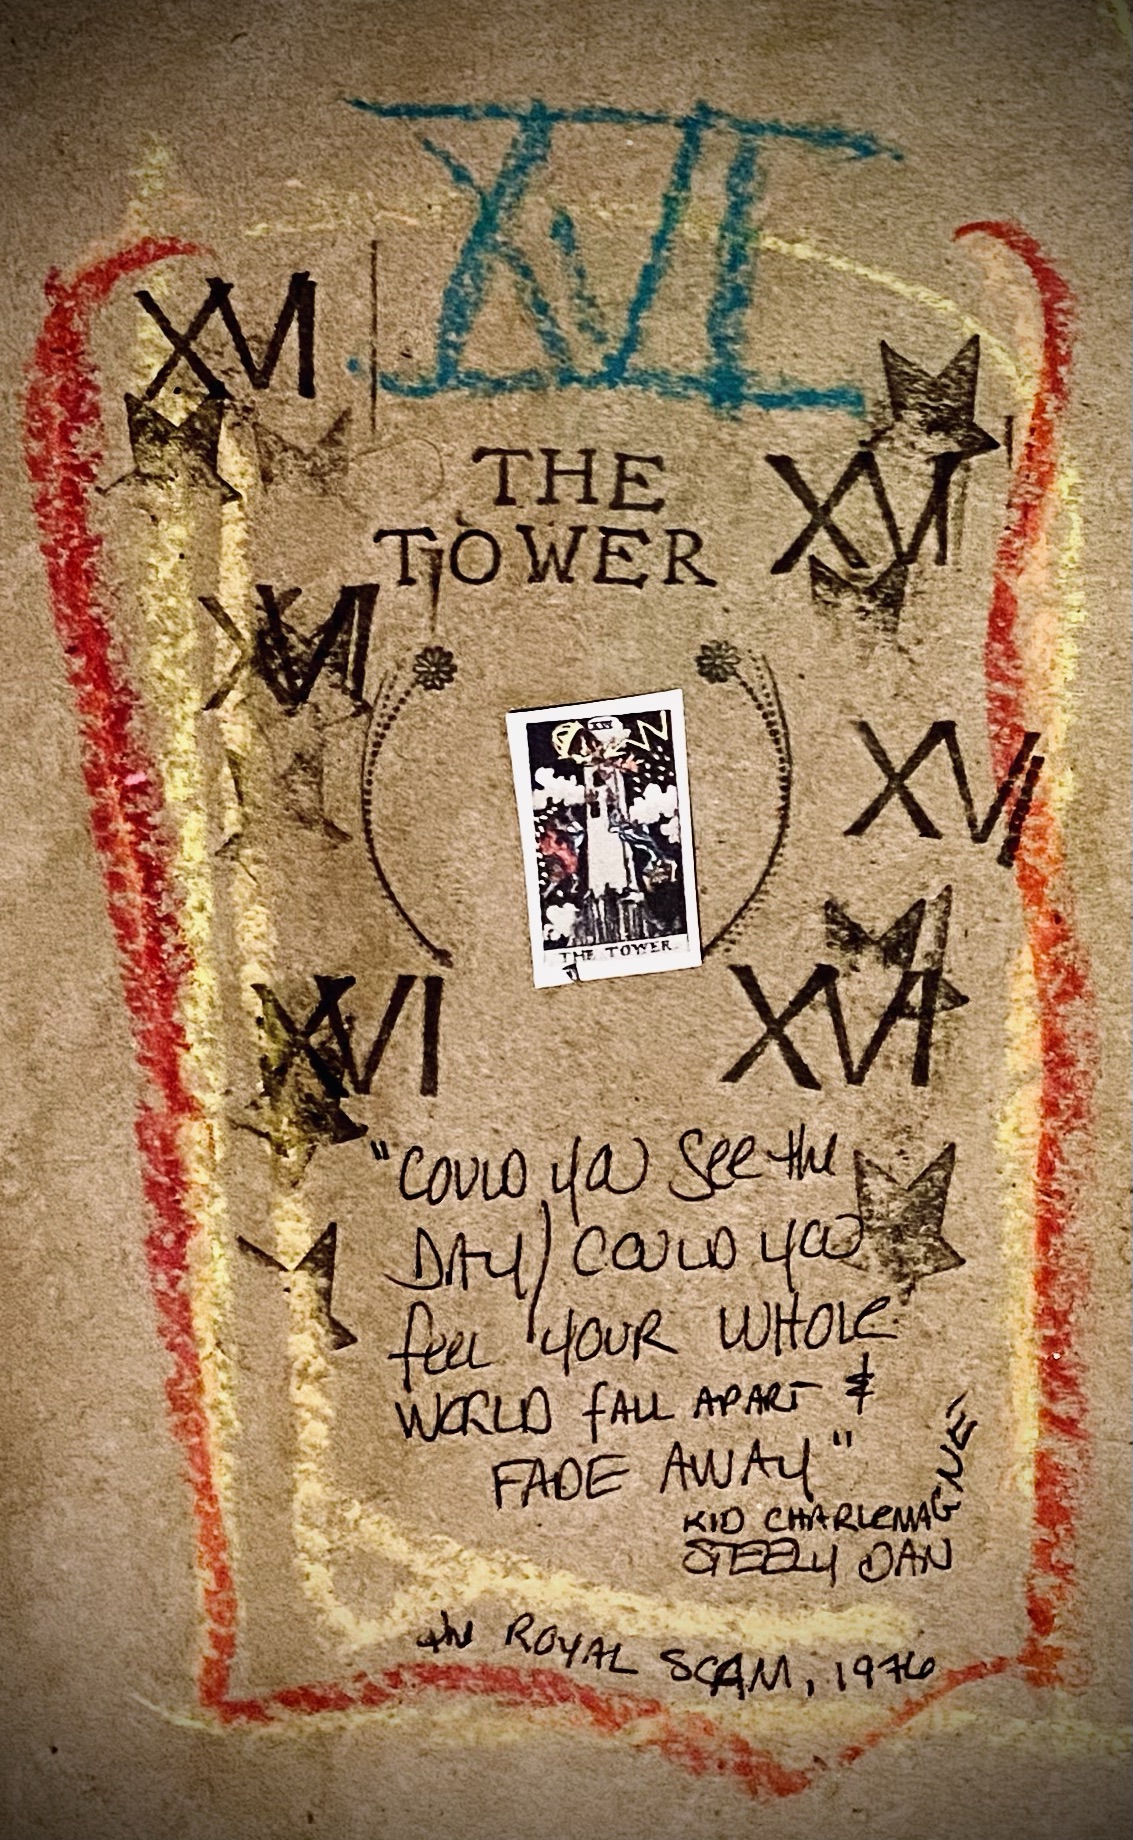 XVI
XVI
THE
TOWER
XVI
XVI
XVI
XVI
THE TOWER.
XVI
XVI
"COULD YOU See the
DAY / COULD YOU
feel YOUR WHOLE
WORLD fALL APART &
FADE AWAY"
KID CHARLEMAGNE
STEELY DAN
the ROYAL SCAM, 1976